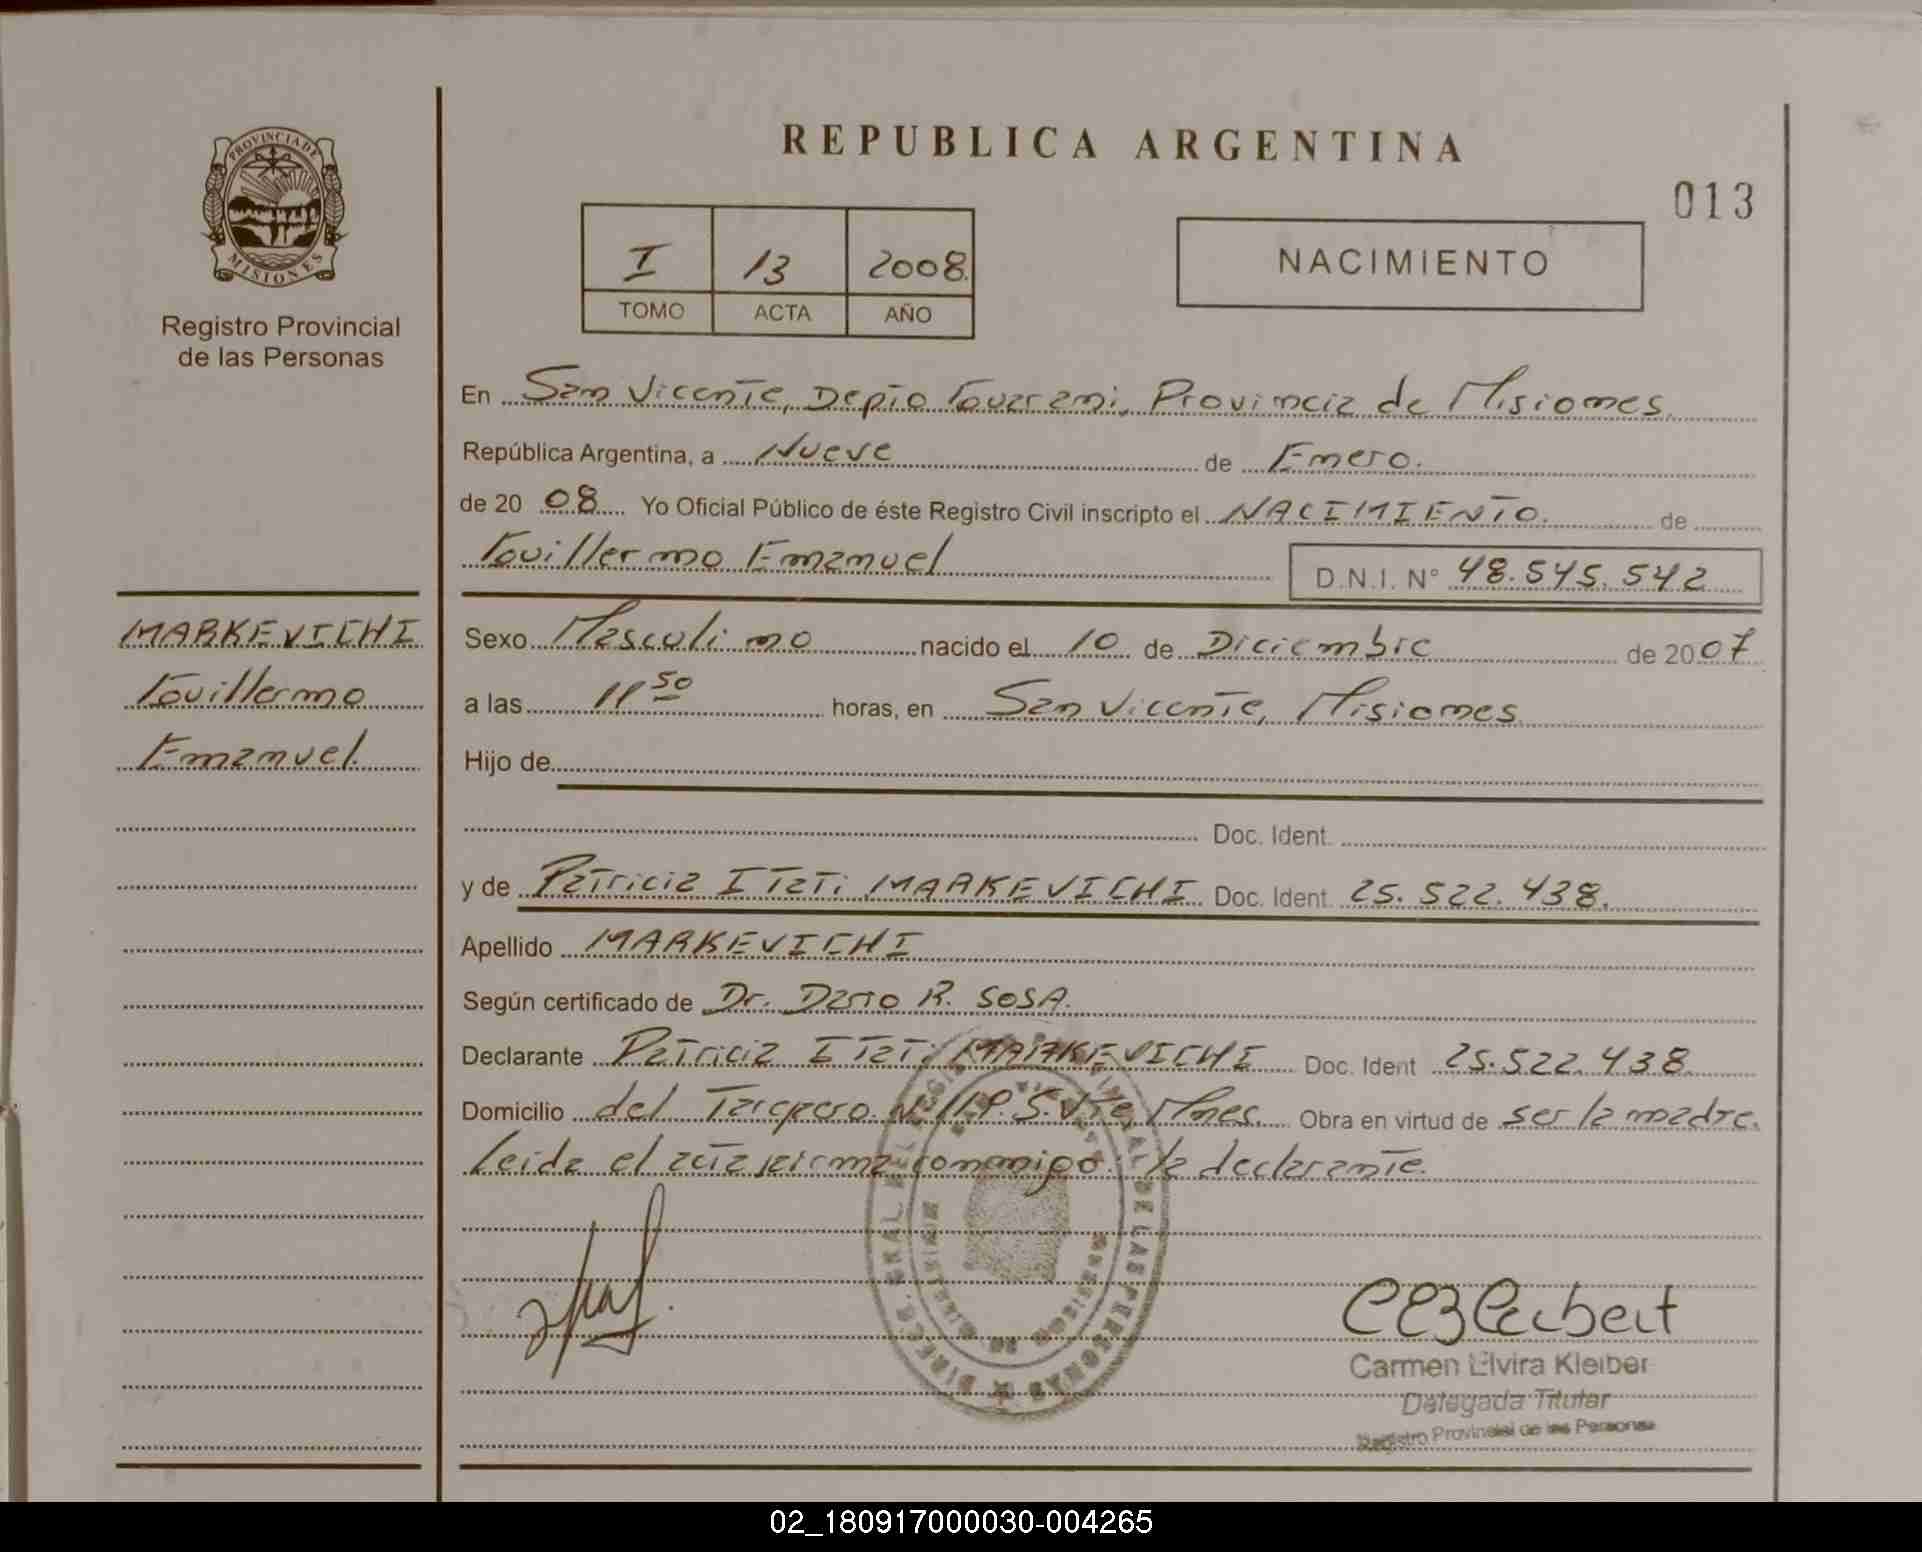 PROVINCIA DE
MISIONES
Registro Provincial
de las Personas
REPUBLICA ARGENTINA
013
I 13 2008.
TOMO ACTA AÑO
NACIMIENTO
En San Vicente, Depto Guarani, Provincia de Misiones.
República Argentina, a Nueve de Enero.
de 20 08 Yo Oficial Público de éste Registro Civil inscripto el NACIMIENTO. de
Guillermo Emanuel D.N.I. N° 48.545.542
MARKEVICHI
Guillermo
Emanuel.
Sexo Masculino nacido el 10 de Diciembre de 2007
a las 11 50 horas, en San Vicente, Misiones
Hijo de
Doc. Ident.
y de Patricia Itati MARKEVICHI Doc. Ident. 25.522.438.
Apellido MARKEVICHI
Según certificado de Dr. Dario R. SOSA.
Declarante Patricia Itati MARKEVICHI Doc. Ident 25.522.438
Domicilio del N° 119. S. Vte, Mnes. Obra en virtud de ser la madre.
Leida el acta firma conmigo: la declarante.
DIRECC. GRAL. DEL REGISTRO PROVINCIAL DE LAS PERSONAS
Carmen Elvira Kleiber
Delegada Titular
Registro Provincial de las Personas
02_180917000030-004265